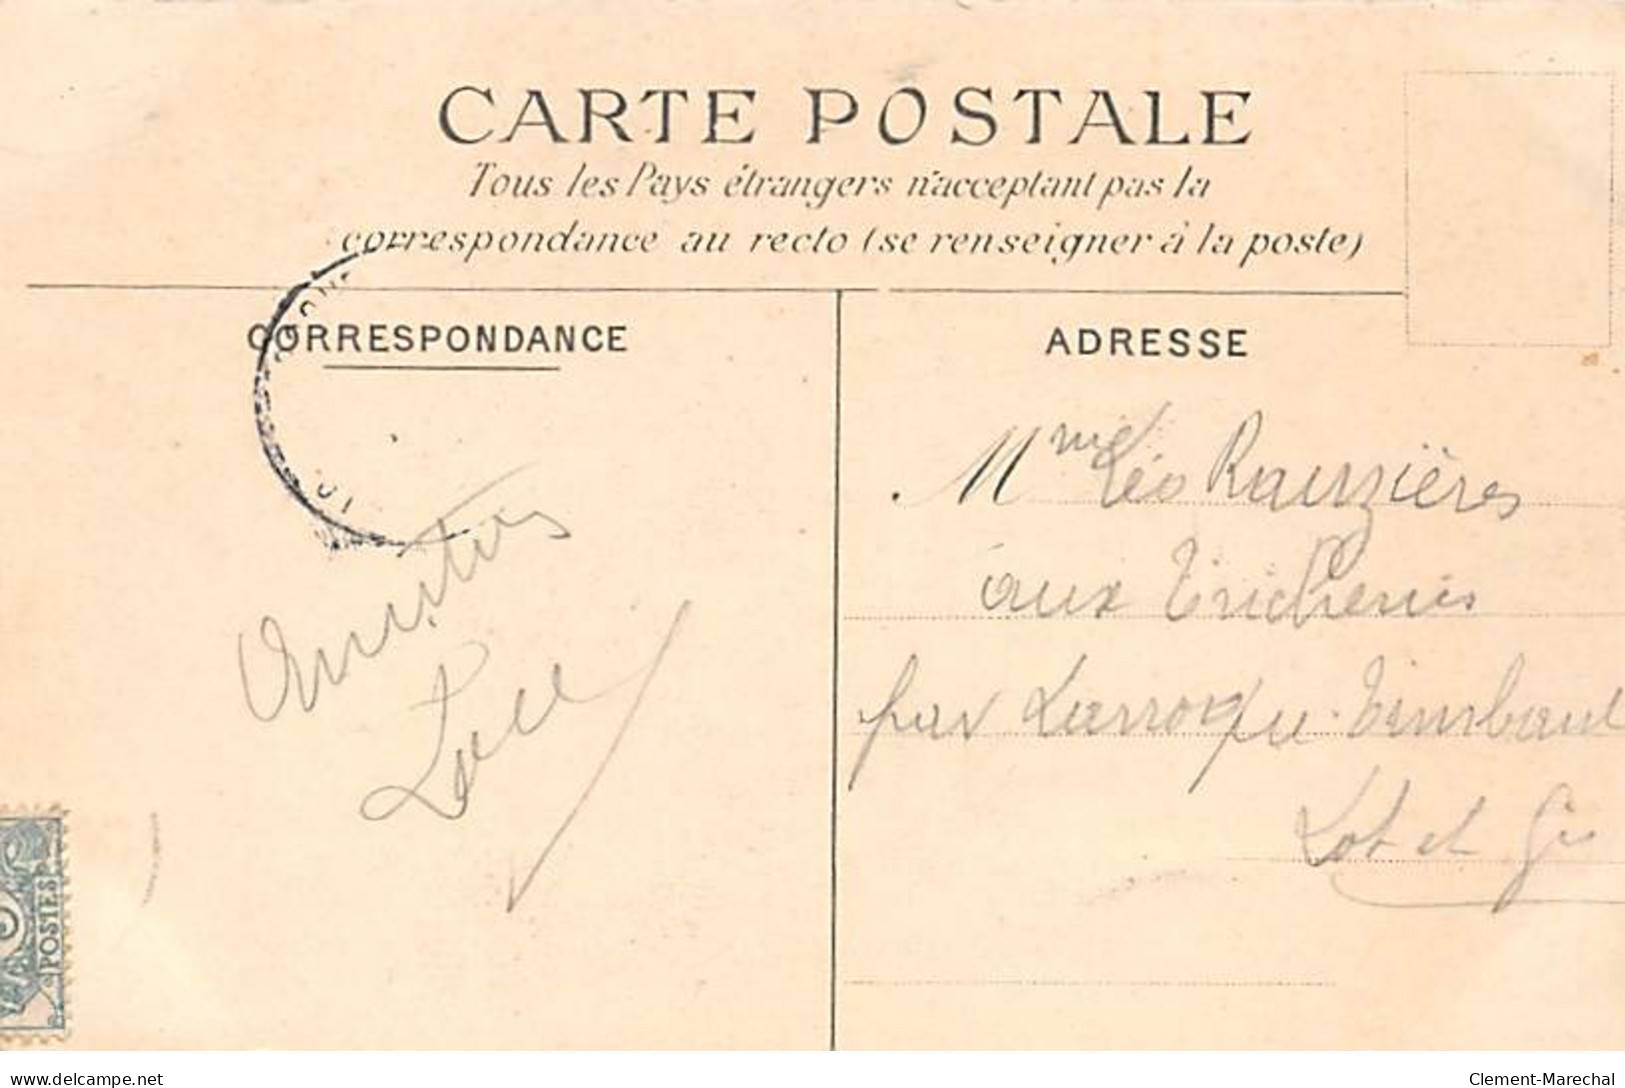 CARTE POSTALE
Tous les Pays étrangers n'acceptant pas la
correspondance au recto (se renseigner à la poste)
CORRESPONDANCE
ADRESSE
Mme Léo Rauzières
aux
par Larroque Timbaut
Lot et Gne
Amitiés
POSTES
delcampe.net
Clement-Marechal